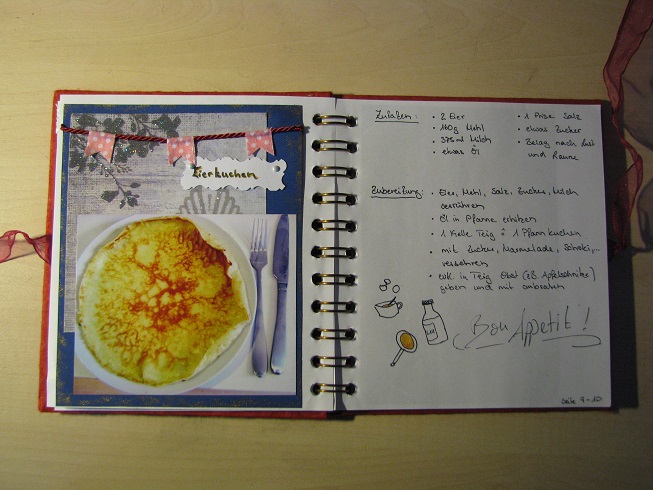 Eierkuchen
Zutaten:
• 2 Eier
• 160g Mehl
• 375ml Milch
• etwas Öl
• 1 Prise Salz
• etwas Zucker
• Belag nach Lust
und Laune
Zubereitung:
• Eier, Mehl, Salz, Zucker, Milch
verrühren
• Öl in Pfanne erhitzen
• 1 Kelle Teig ≙ 1 Pfannkuchen
• mit Zucker, Marmelade, Schoki,...
verzehren
• evt. in Teig Obst (z.B. Apfelschnitze)
geben und mit anbraten
Bon Appetit!
Seite 9-10